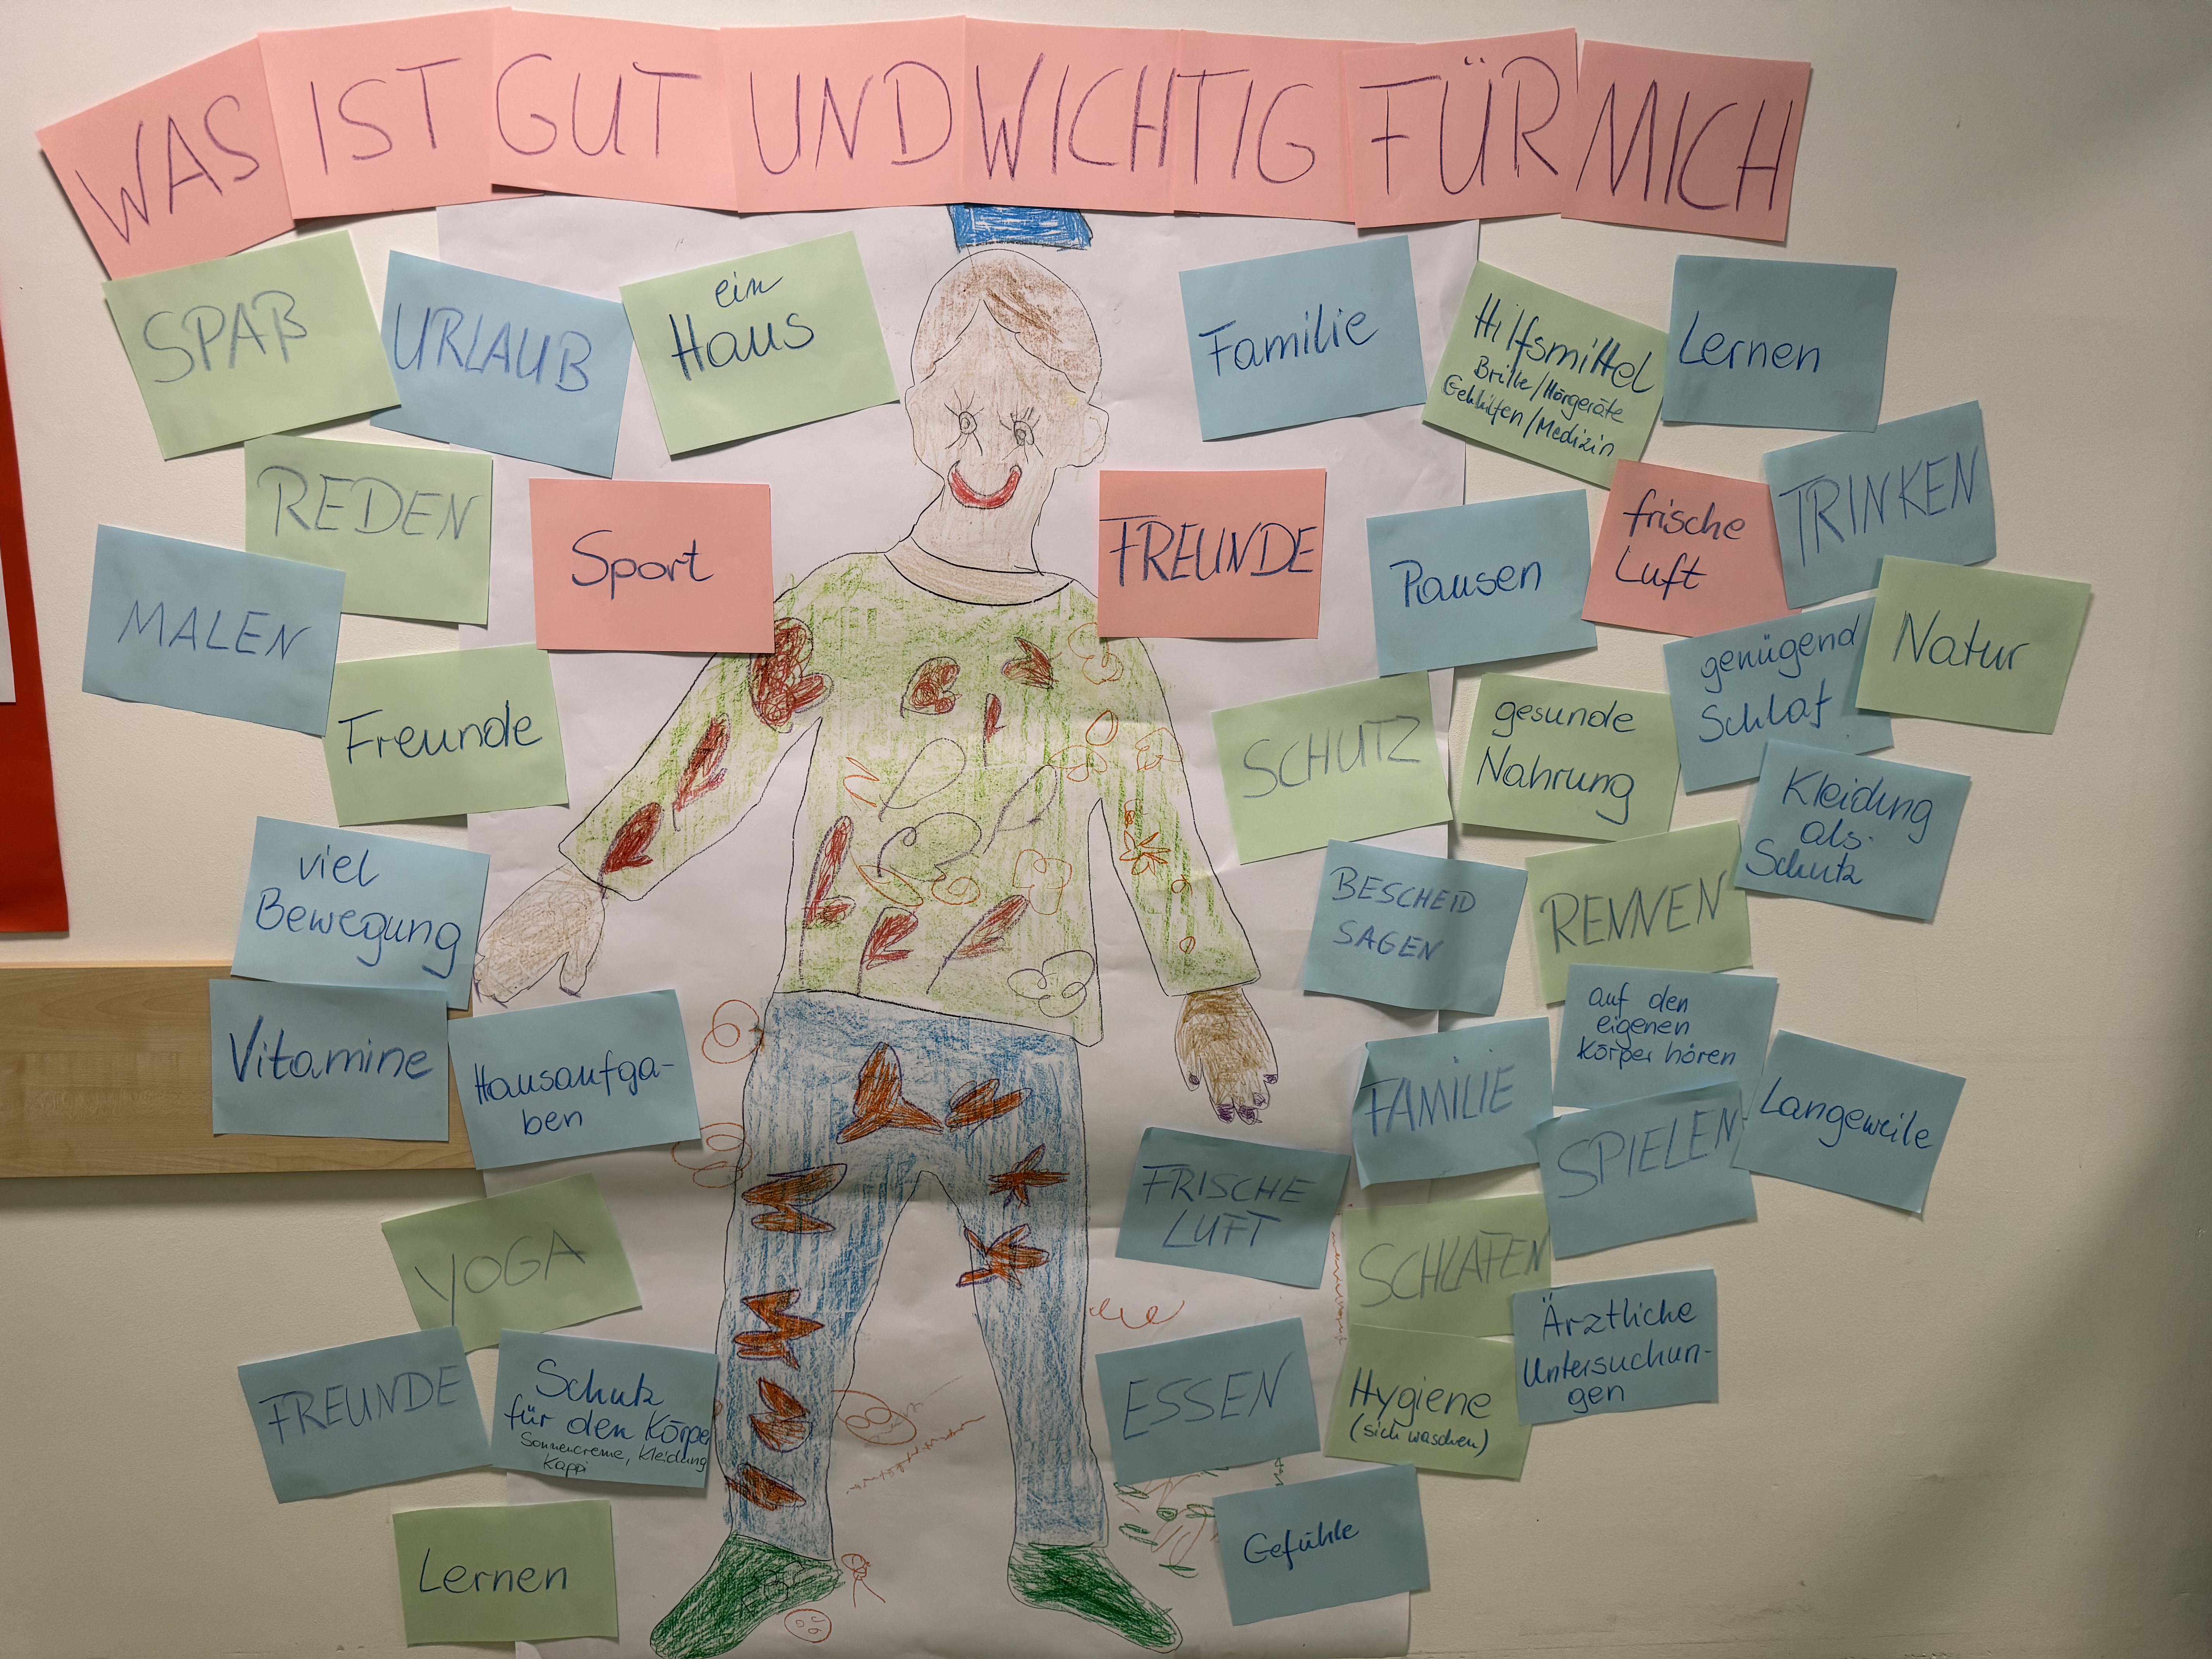 WAS IST GUT UND WICHTIG FÜR MICH
SPAß
URLAUB
ein
Haus
Familie
Hilfsmittel
Brille/Hörgeräte
Gehhilfen/Medizin
Lernen
REDEN
Sport
FREUNDE
Pausen
frische
Luft
TRINKEN
MALEN
Freunde
SCHUTZ
gesunde
Nahrung
genügend
Schlaf
Natur
Kleidung
als
Schutz
viel
Bewegung
BESCHEID
SAGEN
RENNEN
Vitamine
Hausaufga-
ben
FAMILIE
auf den
eigenen
Körper hören
Langeweile
SPIELEN
FRISCHE
LUFT
YOGA
SCHLAFEN
Ärztliche
Untersuchun-
gen
FREUNDE
Schutz
für den Körper
Sonnencreme, Kleidung
Kappi
ESSEN
Hygiene
(sich waschen)
Lernen
Gefühle